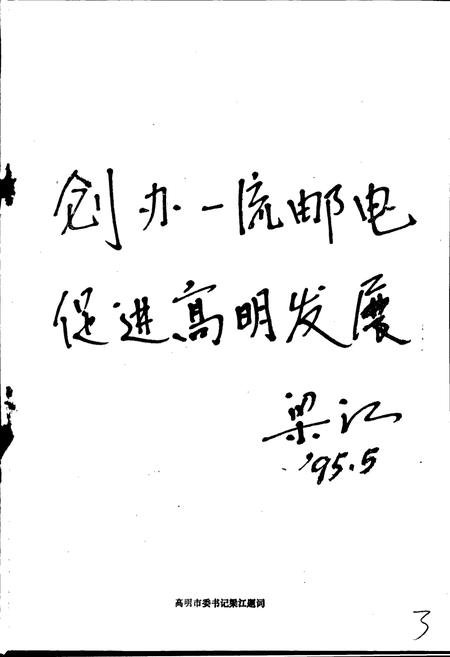 创办一流邮电
促进高明发展
梁江
'95.5
高明市委书记梁江题词
3